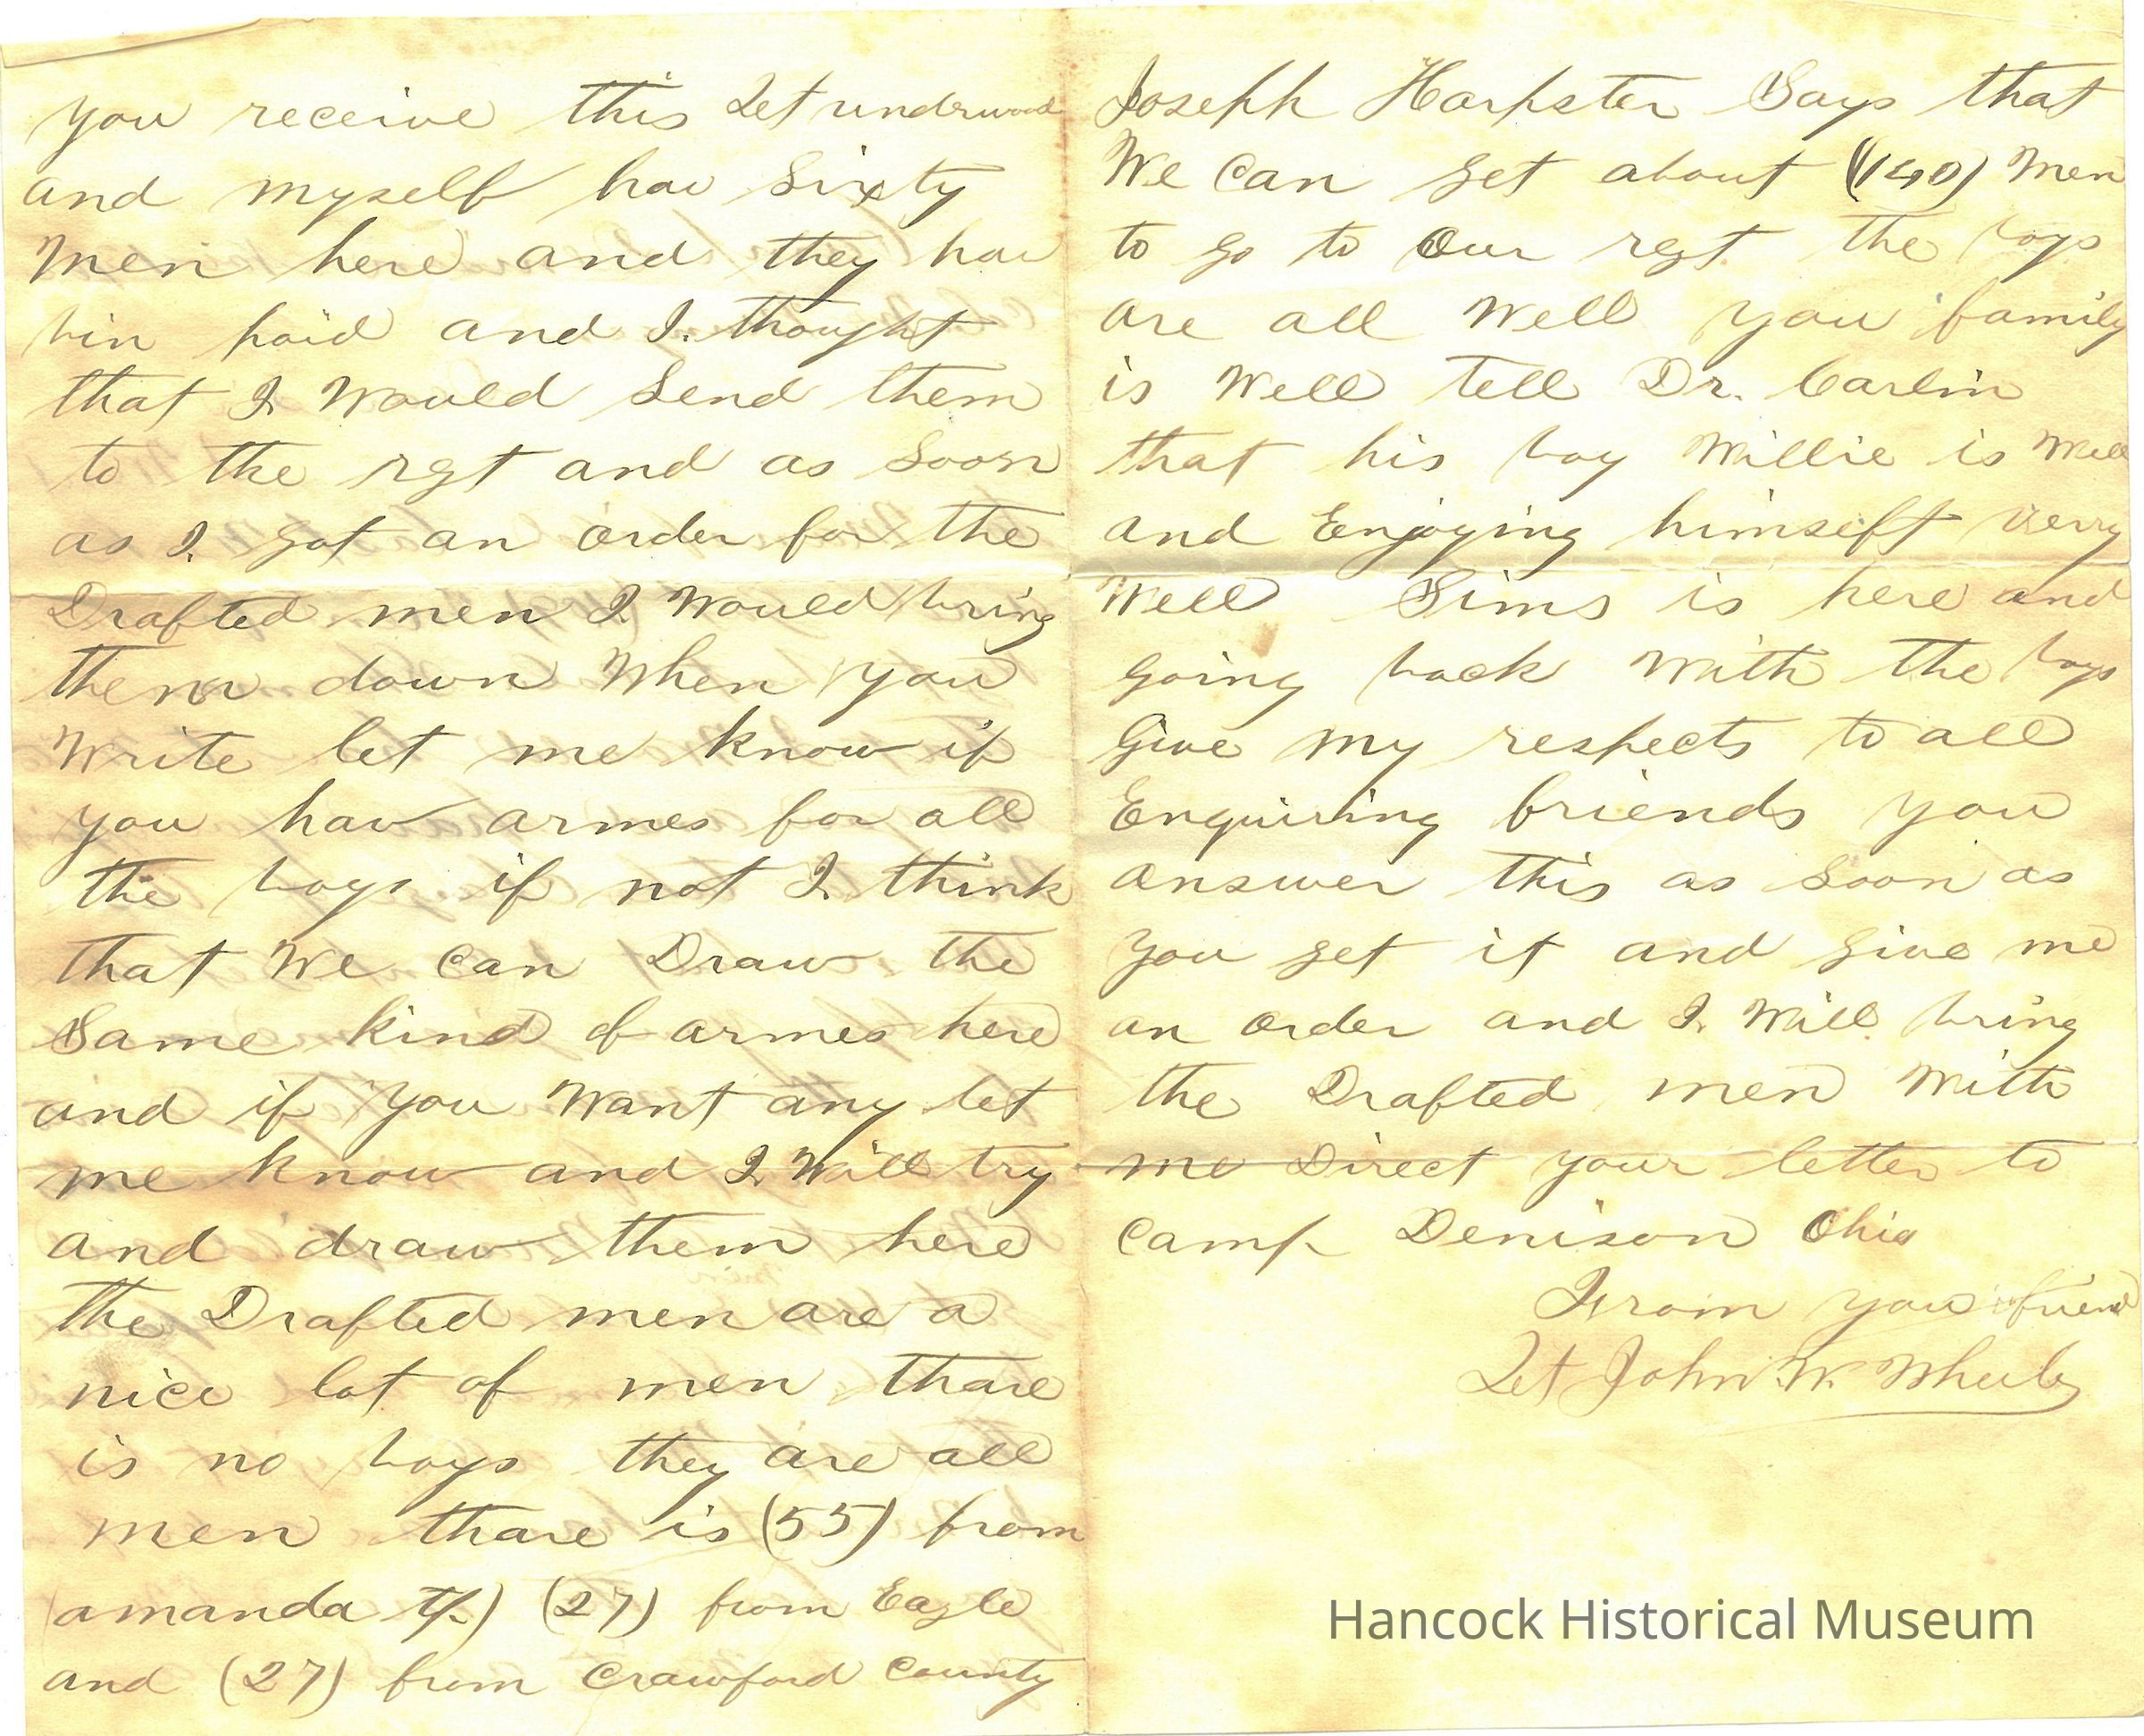 you receive this Let underwood
and myself hav Sixty
men here and they hav
bin paid and I. thought
that I Would Send them
to the rgt and as Soon
as I. got an order for the
Drafted men I Would bring
them down When you
Write let me know if
you hav armes for all
the boys if not I think
that We can Draw the
Same kind of armes here
and if you Want any let
me know and I Will try
and draw them here
the Drafted men are a
nice lot of men thare
is no boys they are all
men thare is (55) from
amanda tp.) (27) from Eagle
and (27) from Crawford County
Joseph Harpster Says that
We Can get about (140) Men
to go to Our rgt the boys
are all Well you family
is Well tell Dr. Carlin
that his boy Willie is Well
and Enjoying himself verry
Well Sims is here and
going back With the boys
Give my respects to all
Enquiring friends you
answer this as Soon as
you get it and give me
an order and I. Will bring
the Drafted men With
me Direct your letter to
Camp Denison Ohio
From your friend
Let John W. Wheeler
Hancock Historical Museum